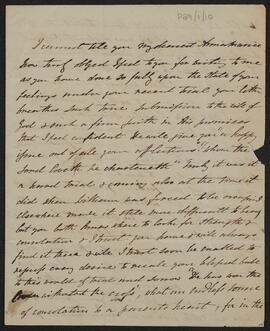 P29/1/10
I cannot tell you My dearest Annabarina
how truly obliged I feel to you for writing to me
as you have done so fully upon the State of your
feelings under your recent trial your letter
breathes such true submission to the will of
God & such a firm faith in His promises
that I feel confident He will give you "a happy
issue out of all your afflictions" "whom the
Lord loveth he chasteneth" Truly it was
a hard trial & coming also at the time it
did when William was forced to be occupied
elsewhere made it still more difficult to bear
but you both know where to look for
consolation & I trust you have & will always
find it there & will I trust soon be enabled to
repress every desire to recall your blessed babe
to this world of trial and sorrow "He has won the
crown without the cross", what an endless source
of consolation to a parents heart, for in the